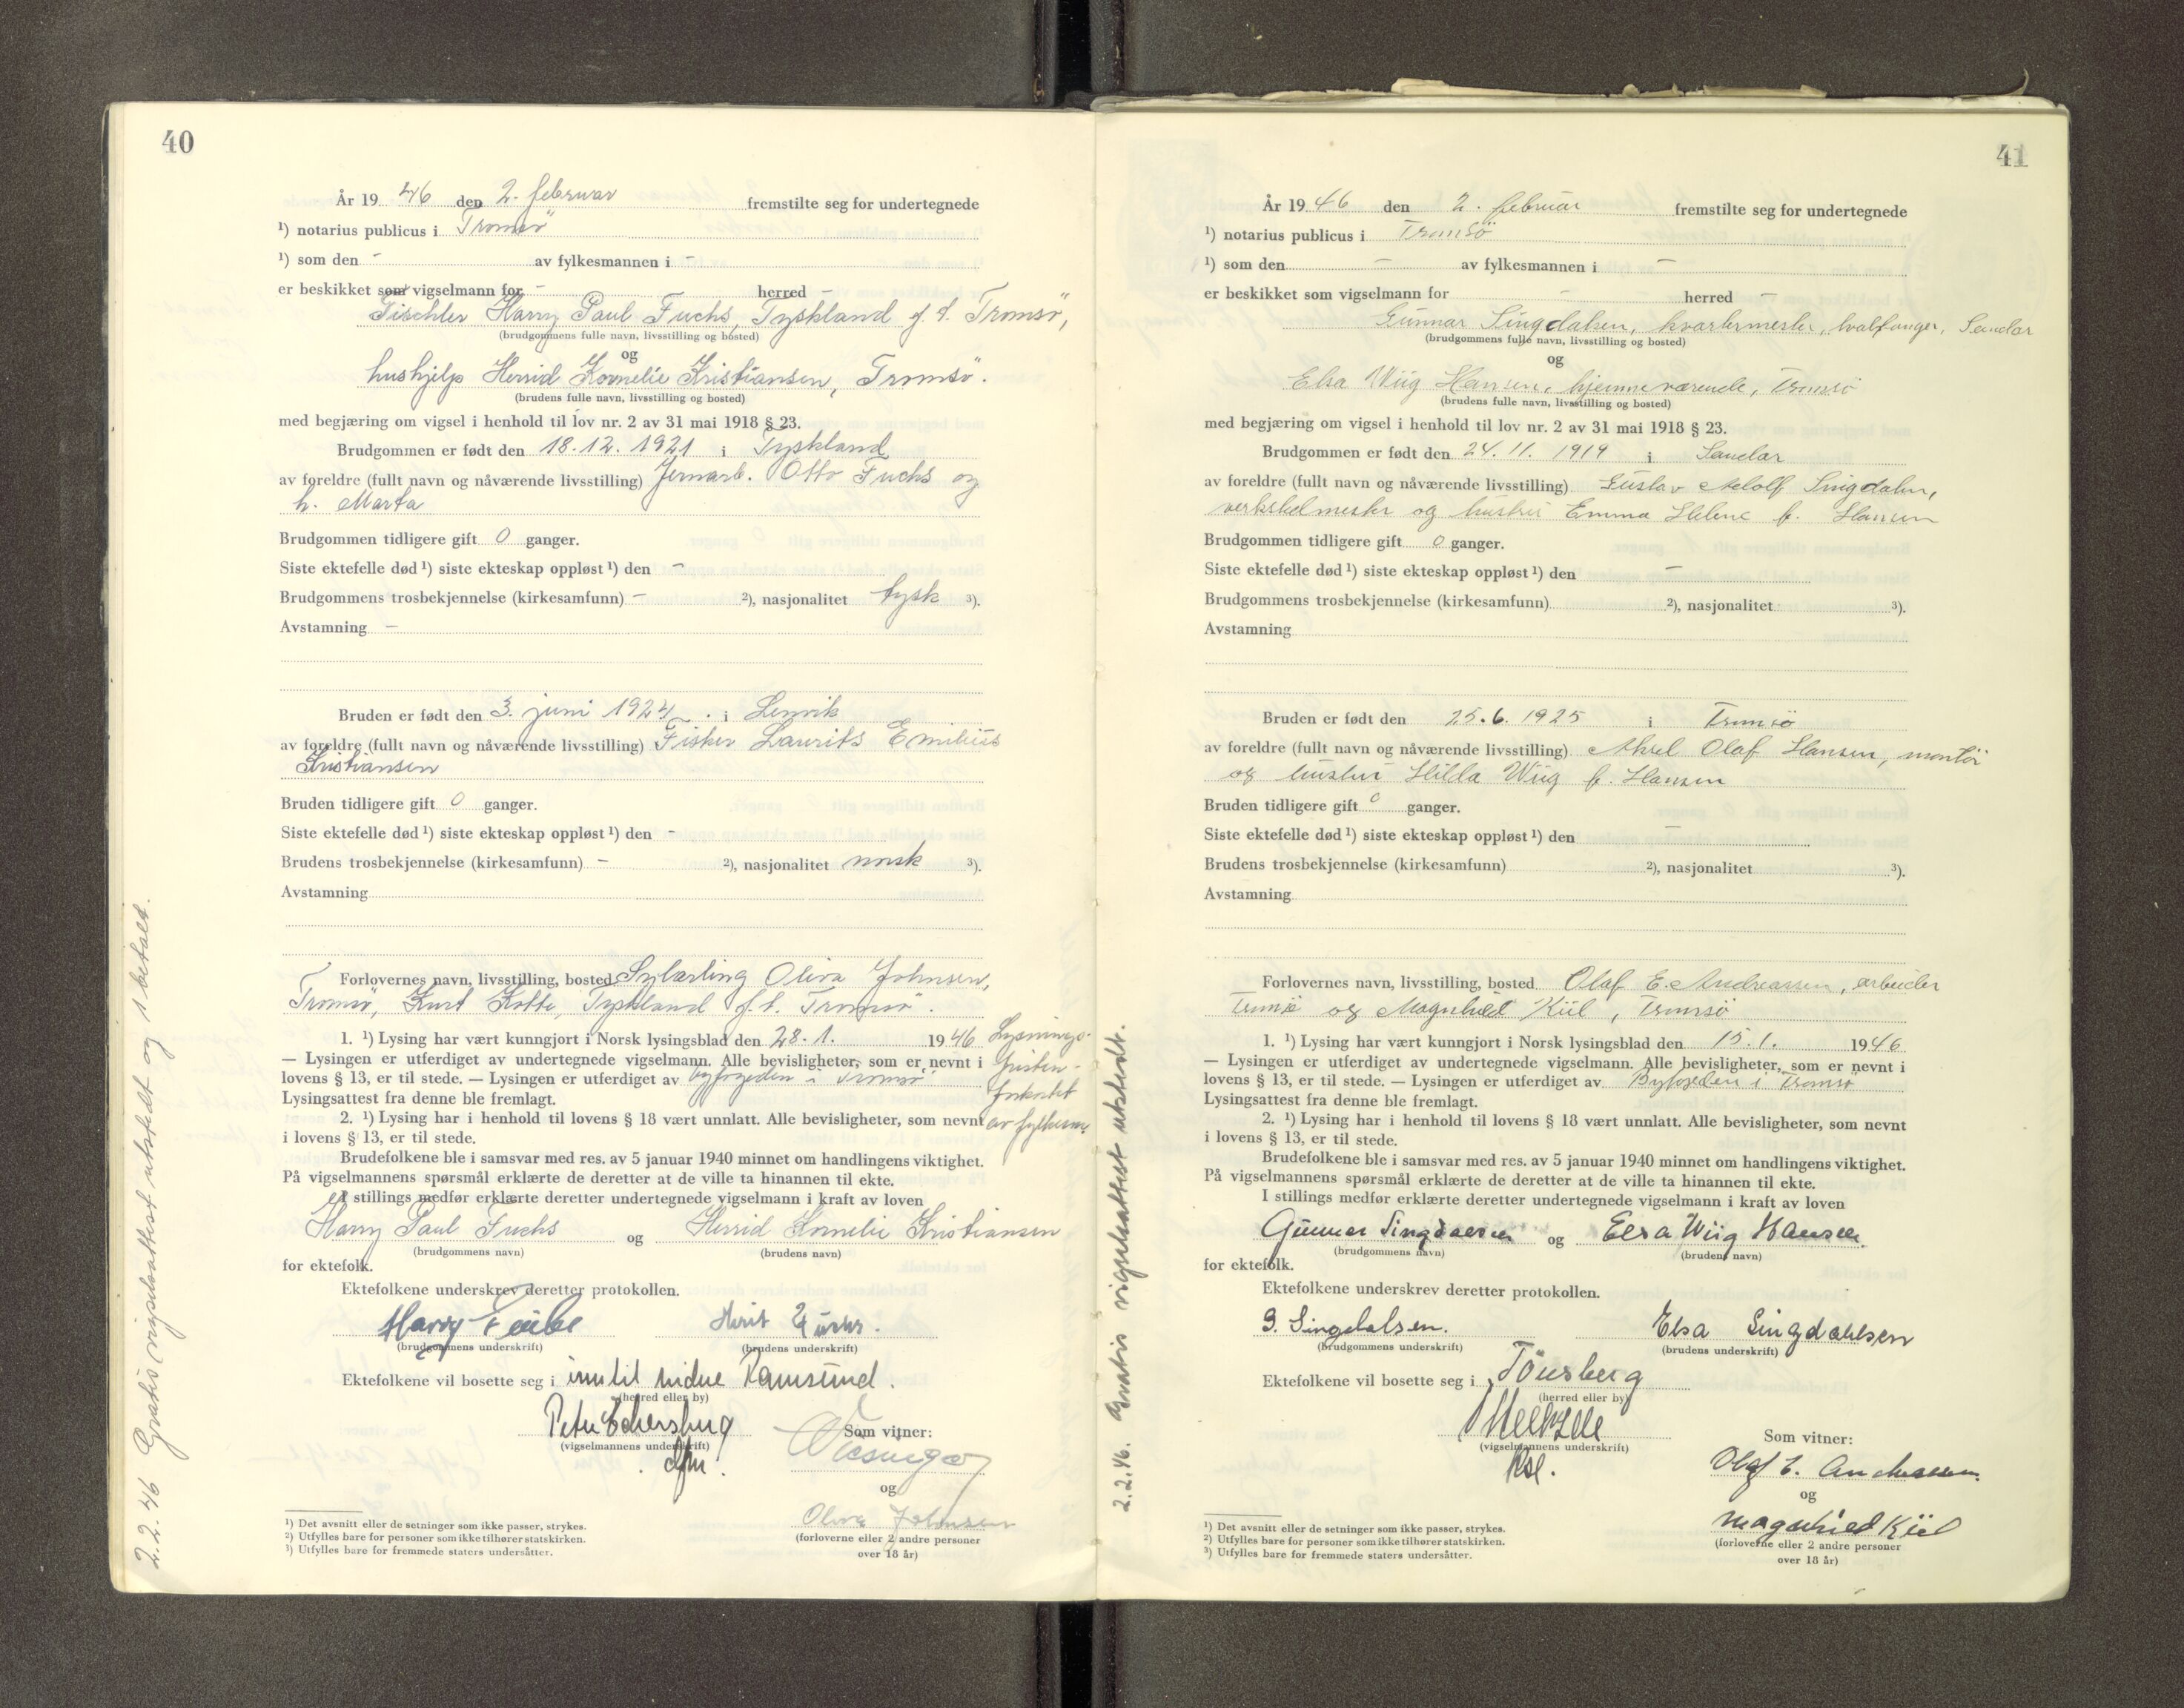 40
År 19 46 den 2. februar fremstilte seg for undertegnede
¹) notarius publicus i Tromsö
¹) som den - av fylkesmannen i -
er beskikket som vigselmann for - herred -
Tischler Harry Paul Fuchs, Tyskland f. t. Tromsö,
(brudgommens fulle navn, livsstilling og bosted)
og
hushjelp Herrid Kornelie Kristiansen, Tromsö.
(brudens fulle navn, livsstilling og bosted)
med begjæring om vigsel i henhold til lov nr. 2 av 31 mai 1918 § 23.
Brudgommen er født den 18.12.1921 i Tyskland
av foreldre (fullt navn og nåværende livsstilling) Jernarb. Otto Fuchs og
h. Marta
Brudgommen tidligere gift 0 ganger.
Siste ektefelle død ¹) siste ekteskap oppløst ¹) den -
Brudgommens trosbekjennelse (kirkesamfunn) - ²), nasjonalitet tysk ³).
Avstamning -
Bruden er født den 3. juni 1924. i Lenvik
av foreldre (fullt navn og nåværende livsstilling) Fisker Laurits Emilius
Kristiansen
Bruden tidligere gift 0 ganger.
Siste ektefelle død ¹) siste ekteskap oppløst ¹) den -
Brudens trosbekjennelse (kirkesamfunn) - ²), nasjonalitet norsk ³).
Avstamning
Forlovernes navn, livsstilling, bosted Sylærling Oliva Johnsen,
Tromsö, Kurt Kotte, Tyskland f.t. Tromsö.
1. ¹) Lysing har vært kunngjort i Norsk lysingsblad den 28.1. 1946 Lysnings-
— Lysingen er utferdiget av undertegnede vigselmann. Alle bevisligheter, som er nevnt i fristen
lovens § 13, er til stede. — Lysingen er utferdiget av byfogden i Tromsö forkortet
Lysingsattest fra denne ble fremlagt.
2. ¹) Lysing har i henhold til lovens § 18 vært unnlatt. Alle bevisligheter, som nevnt av fylkesm.
i lovens § 13, er til stede.
Brudefolkene ble i samsvar med res. av 5 januar 1940 minnet om handlingens viktighet.
På vigselmannens spørsmål erklærte de deretter at de ville ta hinannen til ekte.
I stillings medfør erklærte deretter undertegnede vigselmann i kraft av loven
Harry Paul Fuchs og Herrid Kornelie Kristiansen
(brudgommens navn) (brudens navn)
for ektefolk.
Ektefolkene underskrev deretter protokollen.
Harry
(brudgommens underskrift) (brudens underskrift)
Ektefolkene vil bosette seg i inntil videre Ramsund.
(herred eller by)
(vigselmannens underskrift) Som vitner:
dfm.
og
Oliva Johnsen
(forloverne eller 2 andre personer
over 18 år)
¹) Det avsnitt eller de setninger som ikke passer, strykes.
²) Utfylles bare for personer som ikke tilhører statskirken.
³) Utfylles bare for fremmede staters undersåtter.
2.2.46 Gratis vigselsattest utstedt og 1 betalt.
41
År 19 46 den 2. februar fremstilte seg for undertegnede
¹) notarius publicus i Tromsö
¹) som den - av fylkesmannen i -
er beskikket som vigselmann for - herred -
Gunnar Singdalsen, kvartermester, hvalfanger, Sandar
(brudgommens fulle navn, livsstilling og bosted)
og
Elsa Wiig Hansen, hjemmeværende, Tromsö
(brudens fulle navn, livsstilling og bosted)
med begjæring om vigsel i henhold til lov nr. 2 av 31 mai 1918 § 23.
Brudgommen er født den 24.11.1919 i Sandar
av foreldre (fullt navn og nåværende livsstilling) Gustav Adolf Singdalsen,
verkstedmester og hustru Emma Helene f. Hansen
Brudgommen tidligere gift 0 ganger.
Siste ektefelle død ¹) siste ekteskap oppløst ¹) den -
Brudgommens trosbekjennelse (kirkesamfunn) ²), nasjonalitet ³).
Avstamning
Bruden er født den 25.6.1925 i Tromsö
av foreldre (fullt navn og nåværende livsstilling) Aksel Olaf Hansen, montör
og hustru Hilda Wiig f. Hansen
Bruden tidligere gift 0 ganger.
Siste ektefelle død ¹) siste ekteskap oppløst ¹) den -
Brudens trosbekjennelse (kirkesamfunn) ²), nasjonalitet ³).
Avstamning
Forlovernes navn, livsstilling, bosted Olaf E. Andreassen, arbeider
Tromsö og Magnhild Kiil, Tromsö
1. ¹) Lysing har vært kunngjort i Norsk lysingsblad den 15.1. 1946
— Lysingen er utferdiget av undertegnede vigselmann. Alle bevisligheter, som er nevnt i
lovens § 13, er til stede. — Lysingen er utferdiget av Byfogden i Tromsö
Lysingsattest fra denne ble fremlagt.
2. ¹) Lysing har i henhold til lovens § 18 vært unnlatt. Alle bevisligheter, som nevnt
i lovens § 13, er til stede.
Brudefolkene ble i samsvar med res. av 5 januar 1940 minnet om handlingens viktighet.
På vigselmannens spørsmål erklærte de deretter at de ville ta hinannen til ekte.
I stillings medfør erklærte deretter undertegnede vigselmann i kraft av loven
Gunnar Singdalsen og Elsa Wiig Hansen.
(brudgommens navn) (brudens navn)
for ektefolk.
Ektefolkene underskrev deretter protokollen.
G. Singdalsen. Elsa Singdahlsen
(brudgommens underskrift) (brudens underskrift)
Ektefolkene vil bosette seg i Tönsberg
(herred eller by)
(vigselmannens underskrift) Som vitner:
Olaf E. Andreassen.
og
Magnhild Kiil
(forloverne eller 2 andre personer
over 18 år)
¹) Det avsnitt eller de setninger som ikke passer, strykes.
²) Utfylles bare for personer som ikke tilhører statskirken.
³) Utfylles bare for fremmede staters undersåtter.
2.2.46. Gratis vigselsattest utstedt.